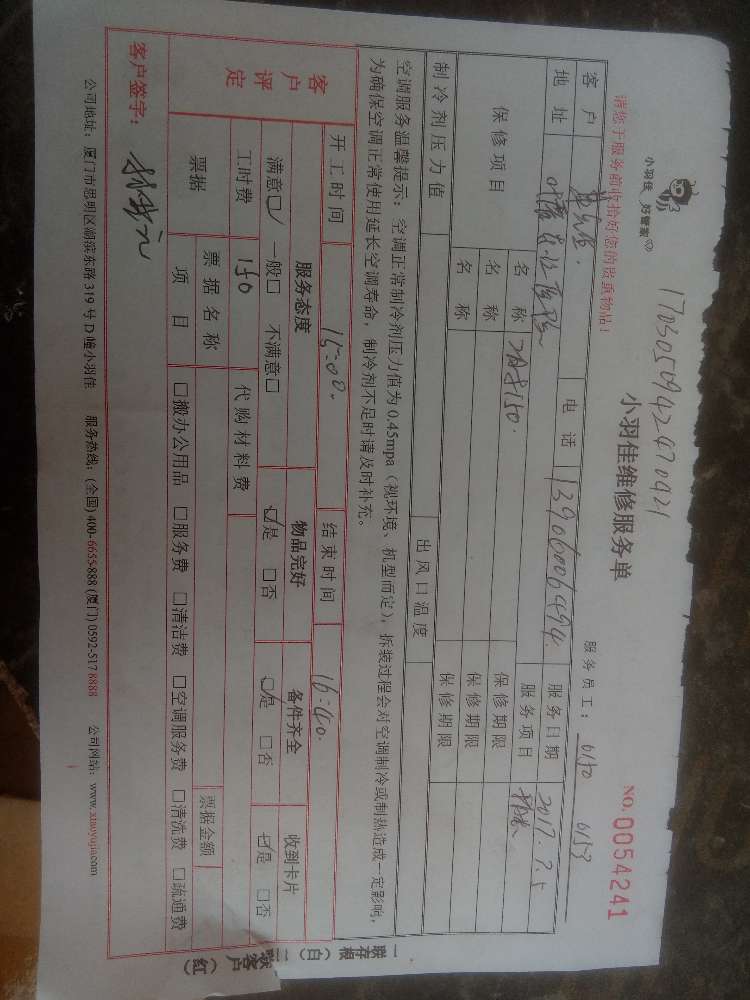 小羽佳 好管家
1703050942470921
小羽佳维修服务单
NO. 0054241
请您于服务前收拾好您的贵重物品!
服务员工: 0150 0153
客户
电话 13906006494
服务日期 2017.3.5
地址
服务项目
保修项目
名称
保修期限
名称
保修期限
名称
保修期限
制冷剂压力值
出风口温度
空调服务温馨提示:空调正常制冷剂压力值为0.45mpa(视环境、机型而定),拆装过程会对空调制冷或制热造成一定影响,
为确保空调正常使用延长空调寿命,制冷剂不足时请及时补充。
开工时间 15:00.
结束时间 16:40.
客户评定
服务态度 物品完好 备件齐全 收到卡片
满意☑ 一般□ 不满意□ ☑是 □否 ☑是 □否 ☑是 □否
工时费 150 代购材料费
票据
票据名称
票据金额
项目 □搬办公用品 □服务费 □清洁费 □空调服务费 □清洗费 □疏通费
客户签字:
公司地址:厦门市思明区湖滨东路319号D幢小羽佳 服务热线:(全国)400-6655-888 (厦门)0592-517 8888 公司网站:www.xiaoyujia.com
一联存根(白) 二联客户(红)